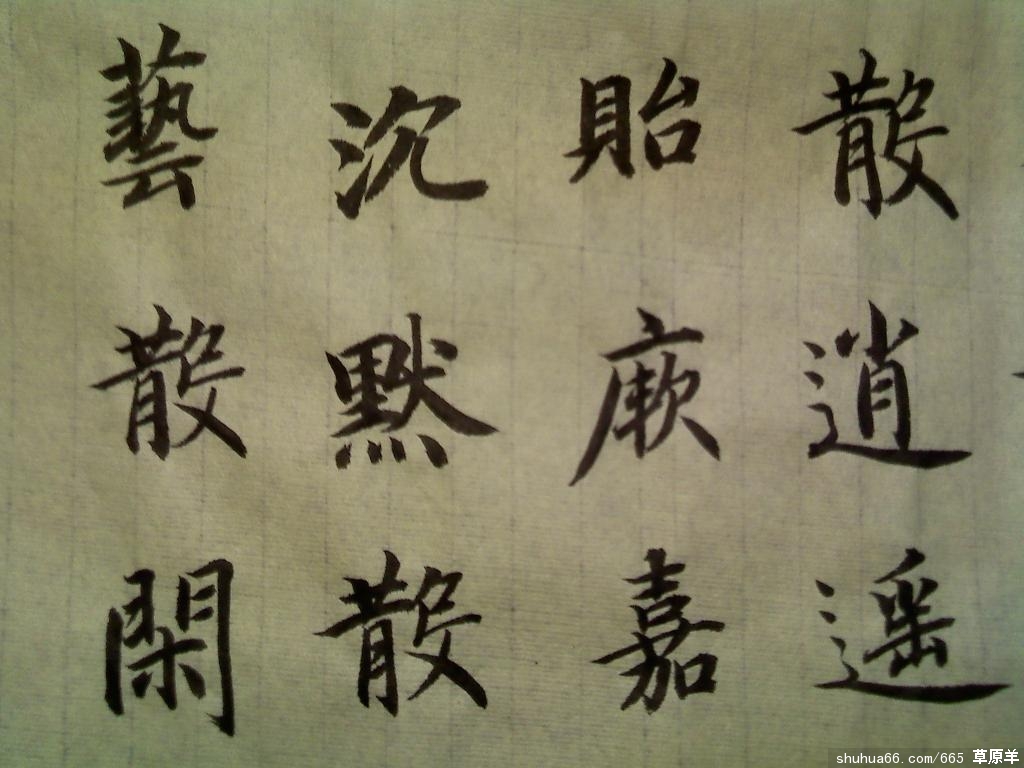 散逍遥
貽厥嘉
沉默散
藝散閑
shuhua66.com/665 草原羊